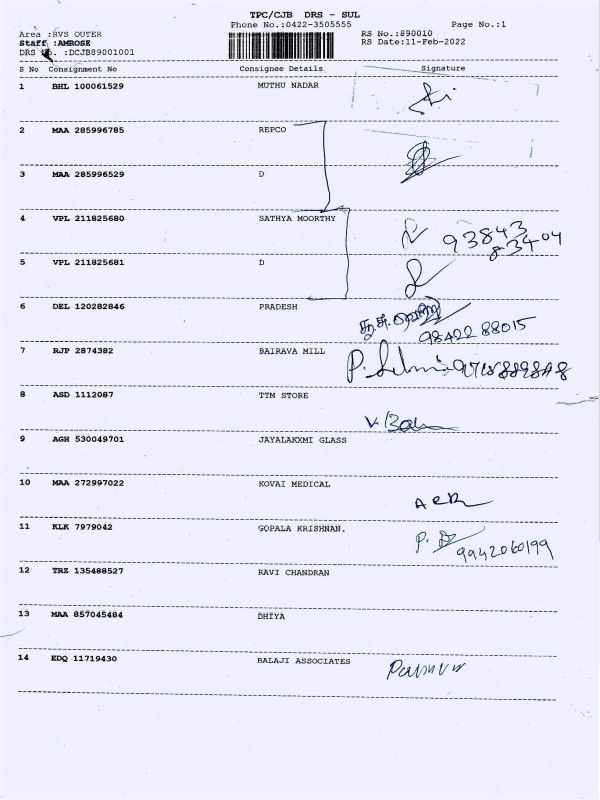 TPC/CJB DRS - SUL
Phone No.:0422-3505555 Page No.:1
Area :RVS OUTER RS No.:890010
Staff :AMROSE RS Date:11-Feb-2022
DRS No. :DCJB89001001
S No Consignment No Consignee Details Signature
1 BHL 100061529 MUTHU NADAR
2 MAA 285996785 REPCO
3 MAA 285996529 D
4 VPL 211825680 SATHYA MOORTHY
93843
83404
5 VPL 211825681 D
6 DEL 120282846 PRADESH
98422 88015
7 RJP 2874382 BAIRAVA MILL
8 ASD 1112087 TTM STORE
9 AGH 530049701 JAYALAKXMI GLASS
10 MAA 272997022 KOVAI MEDICAL
11 KLK 7979042 GOPALA KRISHNAN.
9942060199
12 TRZ 135488527 RAVI CHANDRAN
13 MAA 857045484 DHIYA
14 EDQ 11719430 BALAJI ASSOCIATES